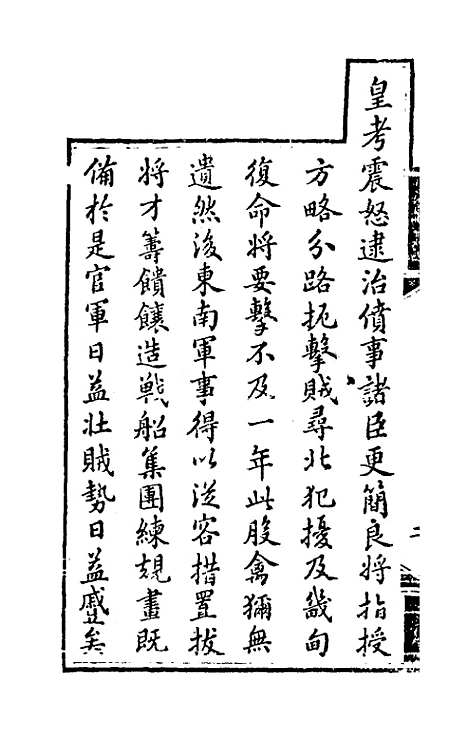 皇考震怒逮治僨事諸臣更簡良將指授
方略分路扼擊賊尋北犯擾及畿甸
復命將要擊不及一年此股禽獮無
遺然後東南軍事得以從容措置拔
將才籌饋饟造戰船集團練規畫既
備於是官軍日益壯賊勢日益蹙矣
二